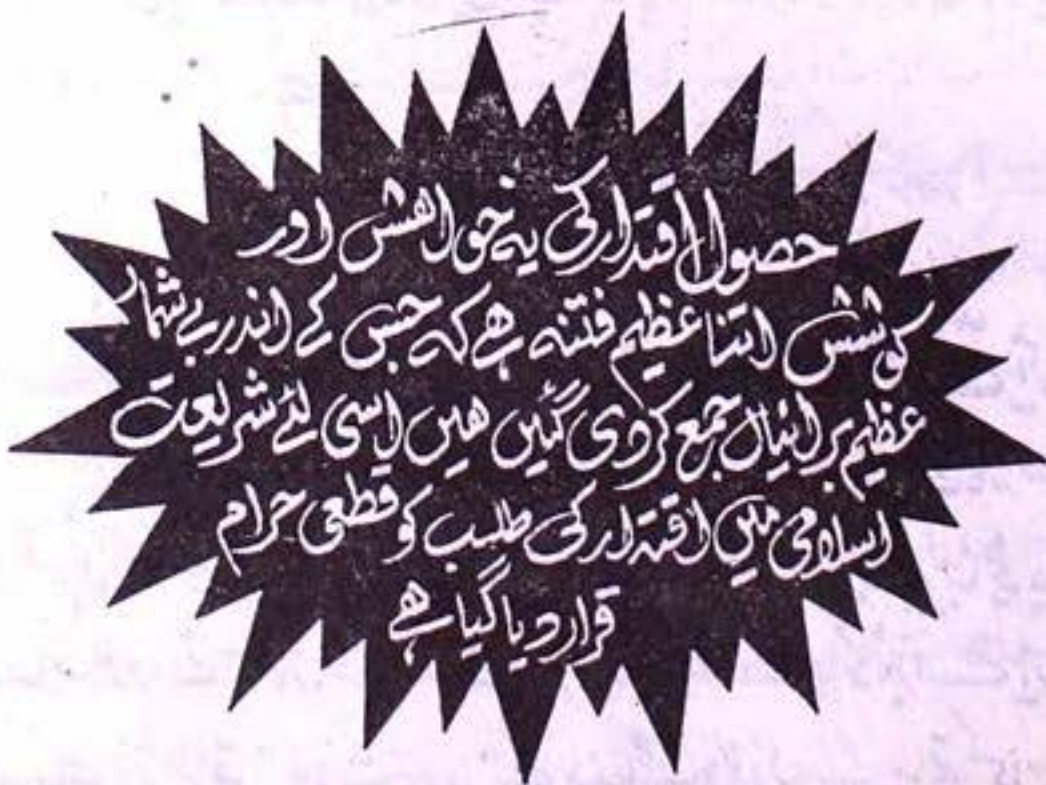 حصول اقتدار کی یہ خواہش اور
کوشش اتنا عظیم فتنہ ہے کہ جس کے اندر بے شمار
عظیم برائیاں جمع کر دی گئیں ہیں اسی لئے شریعت
اسلامی میں اقتدار کی طلب کو قطعی حرام
قرار دیا گیا ہے